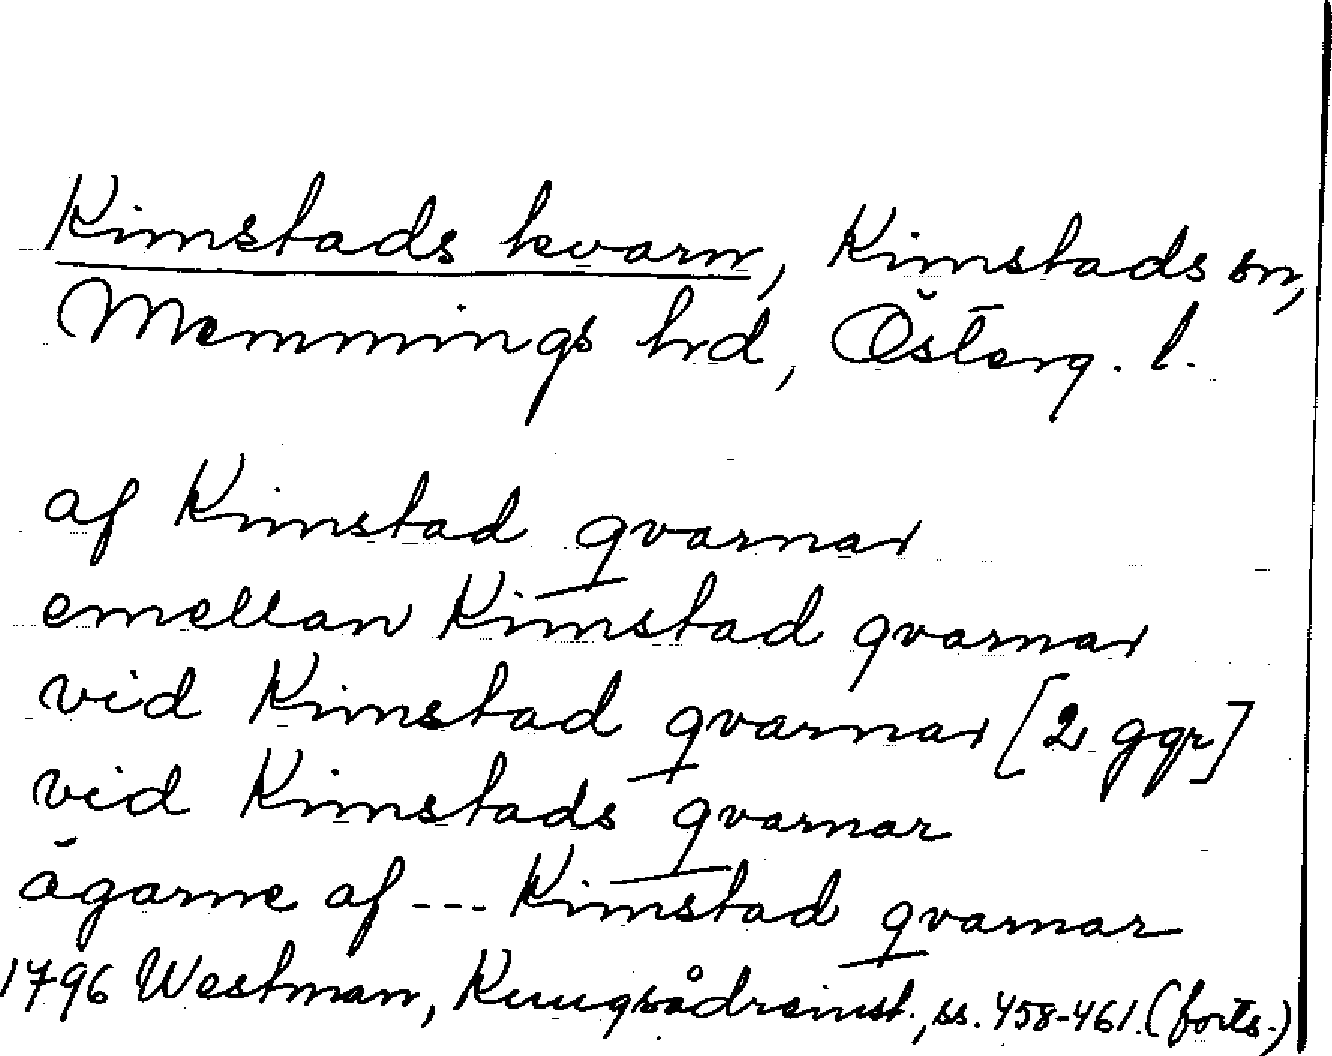 Kimstads kvarn, Kimstads sn,
Memmings hrd, Österg. l.
af Kimstad qvarnar
emellan Kimstad qvarnar
vid Kimstad qvarnar [2 ggr]
vid Kimstads qvarnar
ägarne af --- Kimstad qvarnar
1796 Westman, Kungsådreinst., ss. 458-461. (forts.)